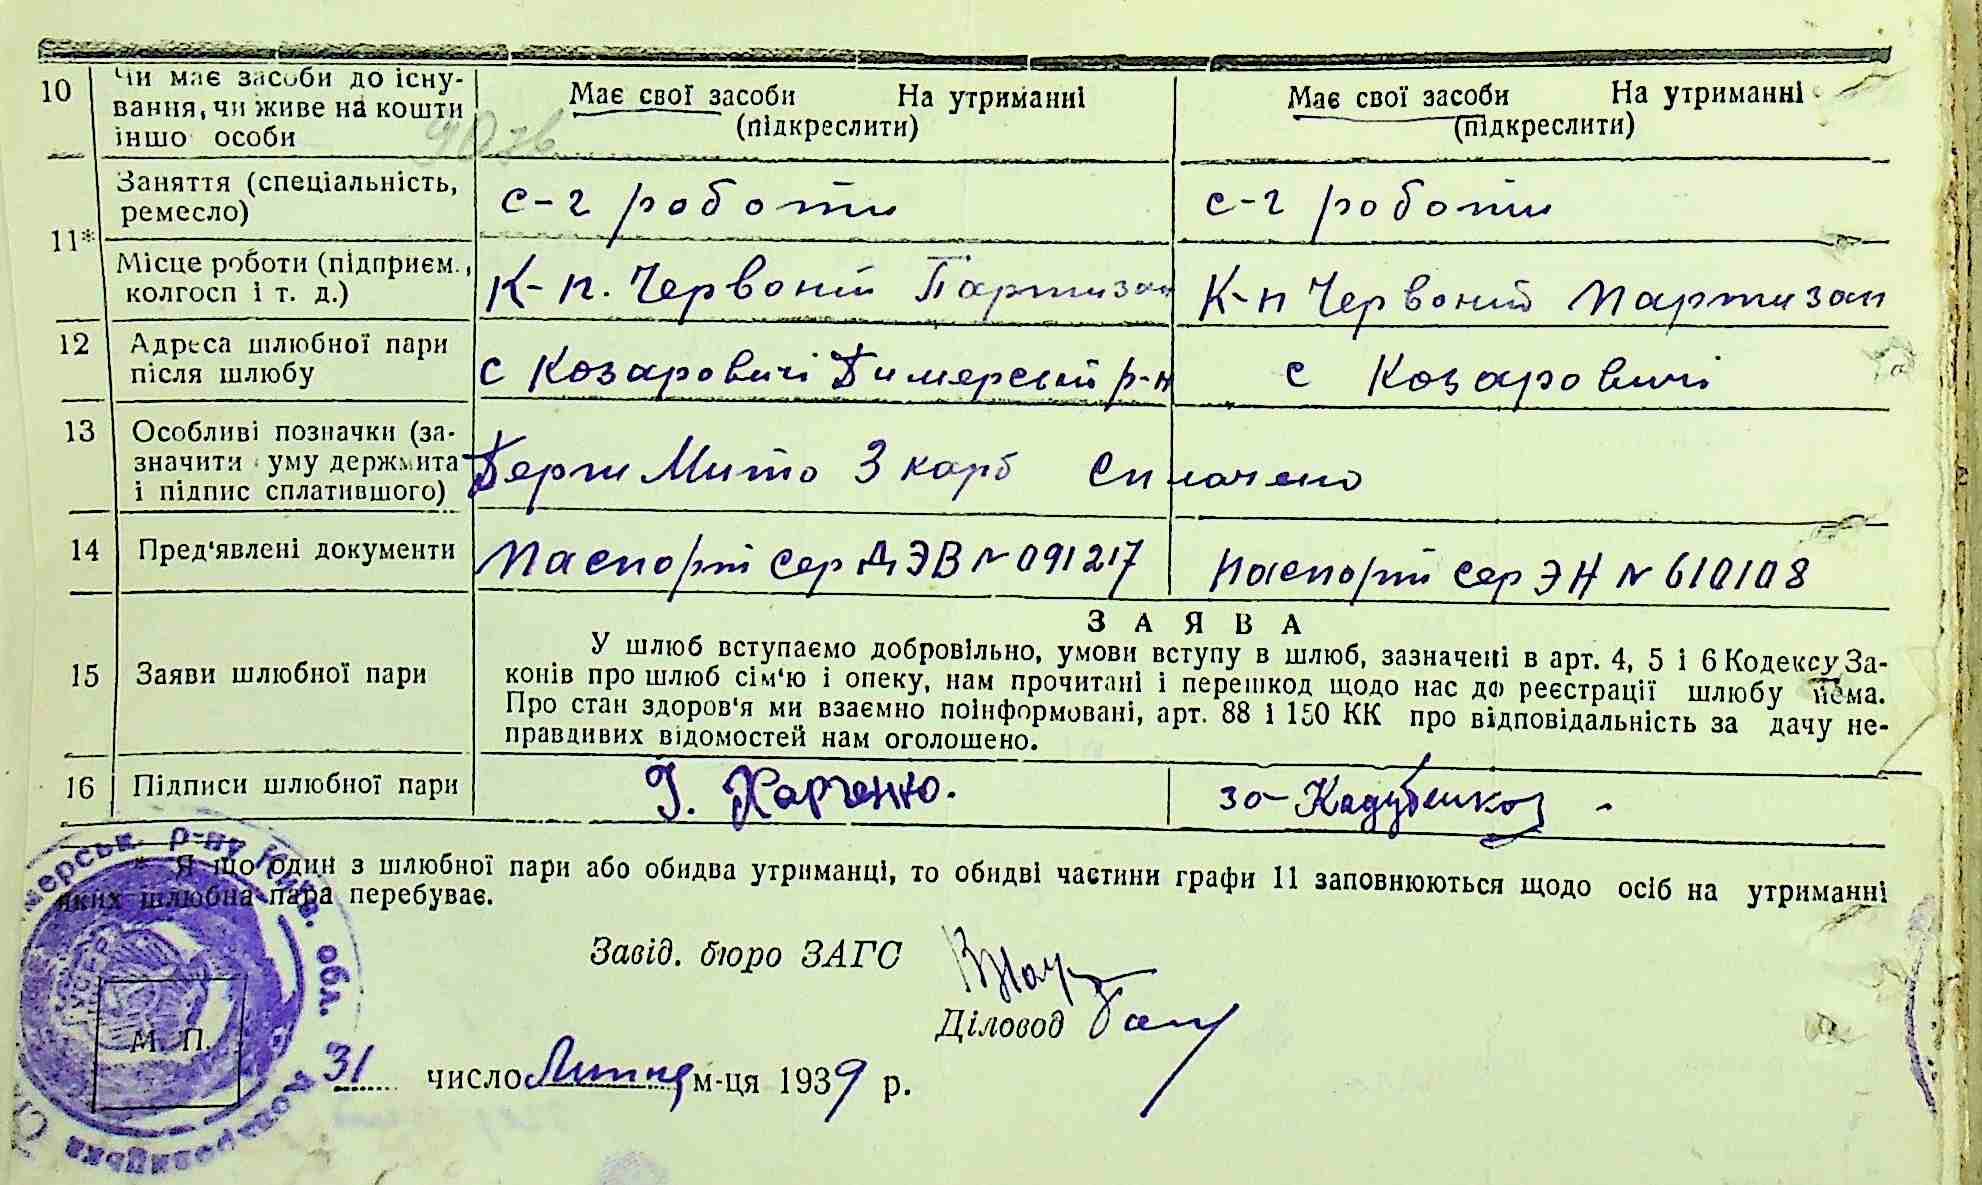 10 Чи має засоби до існу-
вання, чи живе на кошти
іншо особи
Має свої засоби На утриманні
(підкреслити)
Має свої засоби На утриманні
(підкреслити)
11* Заняття (спеціальність,
ремесло)
с-г роботи
с-г роботи
Місце роботи (підприєм.,
колгосп і т. д.)
К-п. Червоний Партизан
К-п Червоний Партизан
12 Адреса шлюбної пари
після шлюбу
с Козаровичі Димерський р-н
с Козаровичі
13 Особливі позначки (за-
значити уму держмита
і підпис сплатившого)
Держ Мито 3 карб Сплачено
14 Пред'явлені документи
Паспорт сер ДЭВ № 091217
паспорт сер ЭН № 610108
15 Заяви шлюбної пари
ЗАЯВА
У шлюб вступаємо добровільно, умови вступу в шлюб, зазначені в арт. 4, 5 і 6 Кодексу За-
конів про шлюб сім'ю і опеку, нам прочитані і перешкод щодо нас до реєстрації шлюбу нема.
Про стан здоров'я ми взаємно поінформовані, арт. 88 і 150 КК про відповідальність за дачу не-
правдивих відомостей нам оголошено.
16 Підписи шлюбної пари
Г. Харченко.
за-Кадубенко
* Я що один з шлюбної пари або обидва утриманці, то обидві частини графи 11 заповнюються щодо осіб на утриманні
яких шлюбна пара перебуває.
Завід. бюро ЗАГС
Діловод
М. П.
31 число Липня м-ця 1939 р.